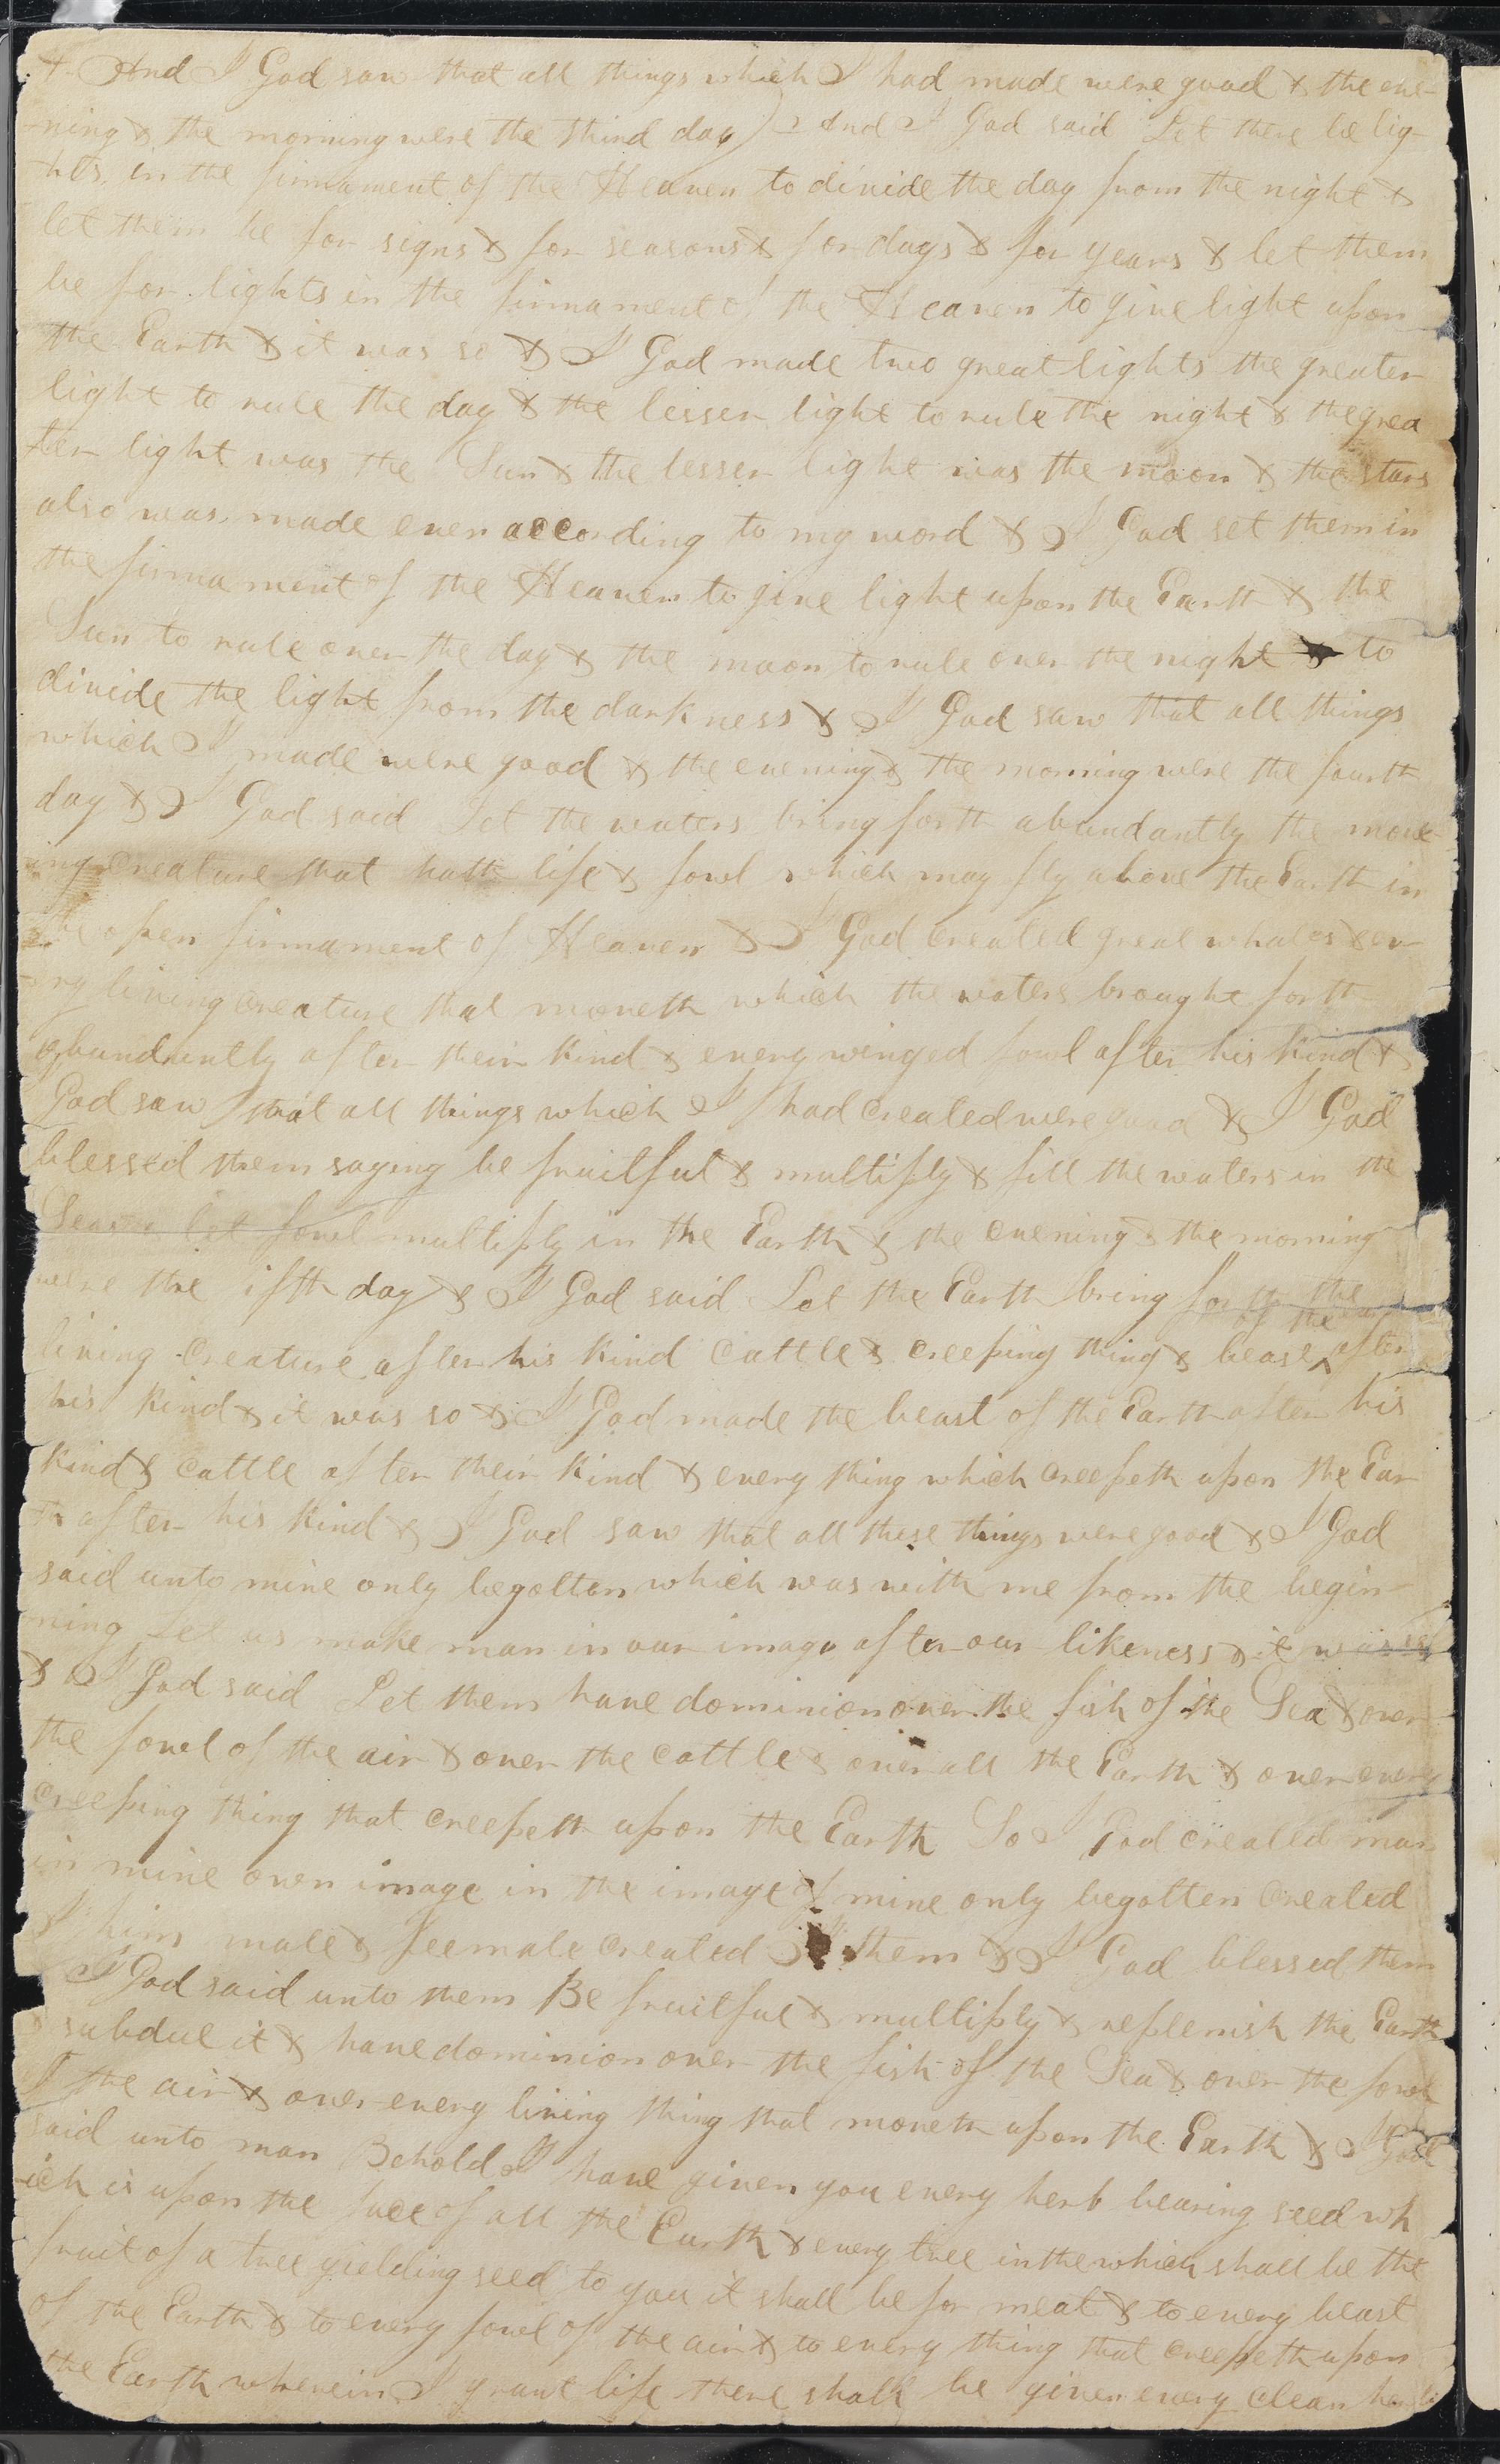 4 And I God saw that all things which I had made were good & the eve-
ning & the morning were the third day) 2 And I God said Let there be lig-
hts in the firmament of the Heaven to divide the day from the night &
let them be for signs & for seasons & for days & for years & let them
be for lights in the firmament of the Heaven to give light upon
the Earth & it was so & I God made two great lights the greater
light to rule the day & the lesser light to rule the night & the grea
ter light was the Sun & the lesser light was the moon & the stars
also was made even according to my word & I God set them in
the firmament of the Heaven to give light upon the Earth & the
Sun to rule over the day & the moon to rule over the night & to
divide the light from the darkness & I God saw that all things
which I made were good & the evening & the morning were the fourth
day & I God said Let the waters bring forth abundantly the move-
ing creature that hath life & fowl which may fly above the Earth in
the open firmament of Heaven & I God created great whales & ev-
ery living creature that moveth which the waters brought forth
abundantly after their kind & every winged fowl after his kind &
God saw that all things which I had created were good & I God
blessed them saying be fruitful & multiply & fill the waters in the
Seas & let fowl multiply in the Earth & the evening & the morning
were the ifth day & I God said Let the Earth bring forth the
living creature after his kind cattle & creeping thing & beast of the after
his kind & it was so & I God made the beast of the Earth after his
kind & cattle after their kind & every thing which creepeth upon the Ear
th after his kind & I God saw that all these things were good & I God
said unto mine only begotten which was with me from the begin-
ning Let us make man in our image after our likeness & it was so
& I God said Let them have dominion over the fish of the Sea & over
the fowl of the air & over the cattle & over all the Earth & over every
creeping thing that creepeth upon the Earth So I God created man
in mine own image in the image of mine only begotten created
I him male & feemale created I them & I God blessed them
& I God said unto them Be fruitful & multiply & replenish the Earth
& subdue it & have dominion over the fish of the Sea & over the fowl
of the air & over every living thing that moveth upon the Earth & I God
said unto man Behold I have given you every herb bearing seed wh
ich is upon the face of all the Earth & every tree in the which shall be the
fruit of a tree yielding seed to you it shall be for meat & to every beast
of the Earth & to every fowl of the air & to every thing that creepeth upon
the Earth wherein I grant life there shall be given every clean herb